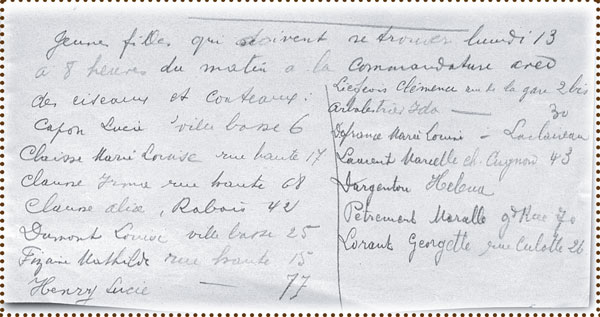 Jeunes filles qui doivent se trouver lundi 13
a 8 heures du matin a la Commandature avec
des ciseaux et couteaux :
Capon Lucie ville basse 6
Claisse Marie Louise rue haute 17
Clause Irma rue haute 68
Clause alice, Rabois 42
Dumont Louise ville basse 25
Fizaine Mathilde rue haute 15
Henry Lucie — 77
Liegeois Clémence rue de la gare 2 bis
Arbalestrier Ida — 30
Defrance Marie Louise -
Laurent Marcelle ch. Cugnon 43
Dargenton Helena
Petrement Maralle gde Rue 70
Lorant Georgette rue Culotte 26